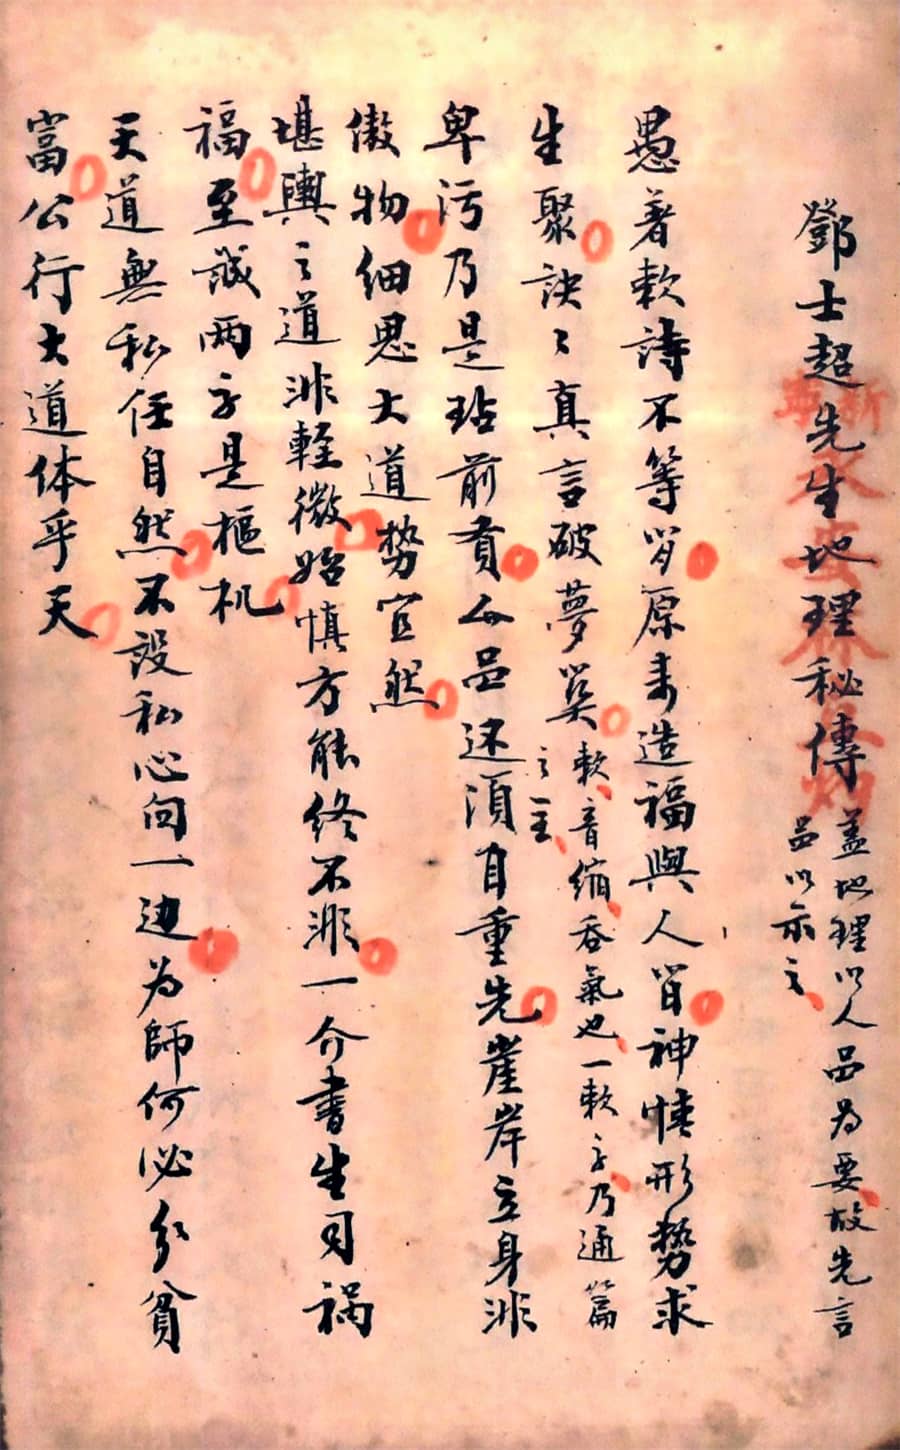 鄧士超先生地理秘傳
蓋地理以人品為要故先言
品以示之
愚著欶詩不等原來造福與人皆神情形勢求
生聚訣々真言破夢
欶音縮吞氣也一欶字乃通篇
之主
卑污乃是玷前賢人品还須自重先崖岸立身非
傲物細思大道勢宜然
堪輿之道非輕微始慎方能終不非一介書生司禍
福至誠兩字是樞机
天道無私任自然不設私心向一边為師何必分貧
富公行大道体乎天